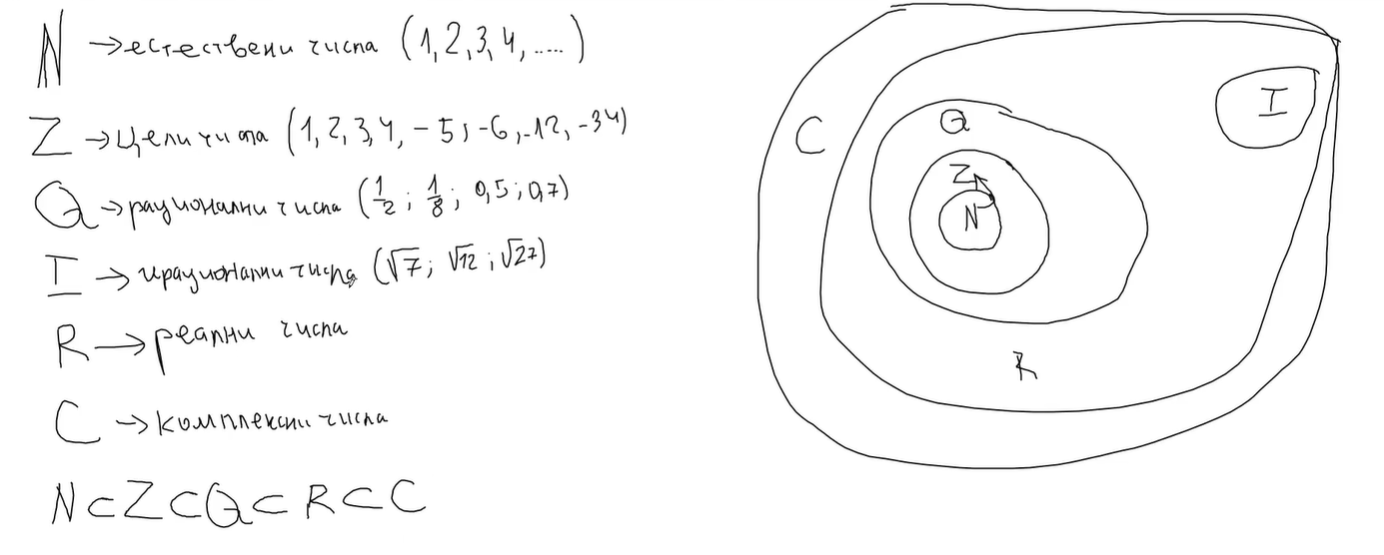 N → естествени числа (1, 2, 3, 4, .....)
Z → Цели числа (1, 2, 3, 4, -5, -6, -12, -34)
Q → рационални числа (1/2; 1/8; 0,5; 0,7)
I → ирационални числа (√7; √12; √27)
R → реални числа
C → комплексни числа
N ⊂ Z ⊂ Q ⊂ R ⊂ C
I
C
Q
Z
N
R